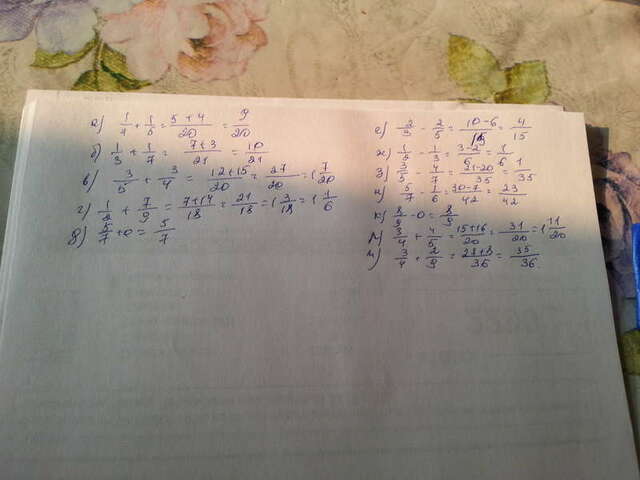 а) 1/4 + 1/5 = 5+4/20 = 9/20
б) 1/3 + 1/7 = 7+3/21 = 10/21
в) 3/5 + 3/4 = 12+15/20 = 27/20 = 1 7/20
г) 1/2 + 7/9 = 7+14/18 = 21/18 = 1 3/18 = 1 1/6
д) 5/7 + 0 = 5/7
е) 2/3 - 2/5 = 10-6/15 = 4/15
ж) 1/2 - 1/3 = 3-2/6 = 1/6
з) 3/5 - 4/7 = 21-20/35 = 1/35
и) 5/7 - 1/6 = 30-7/42 = 23/42
к) 8/9 - 0 = 8/9
л) 3/4 + 4/5 = 15+16/20 = 31/20 = 1 11/20
м) 3/4 + 2/9 = 27+8/36 = 35/36